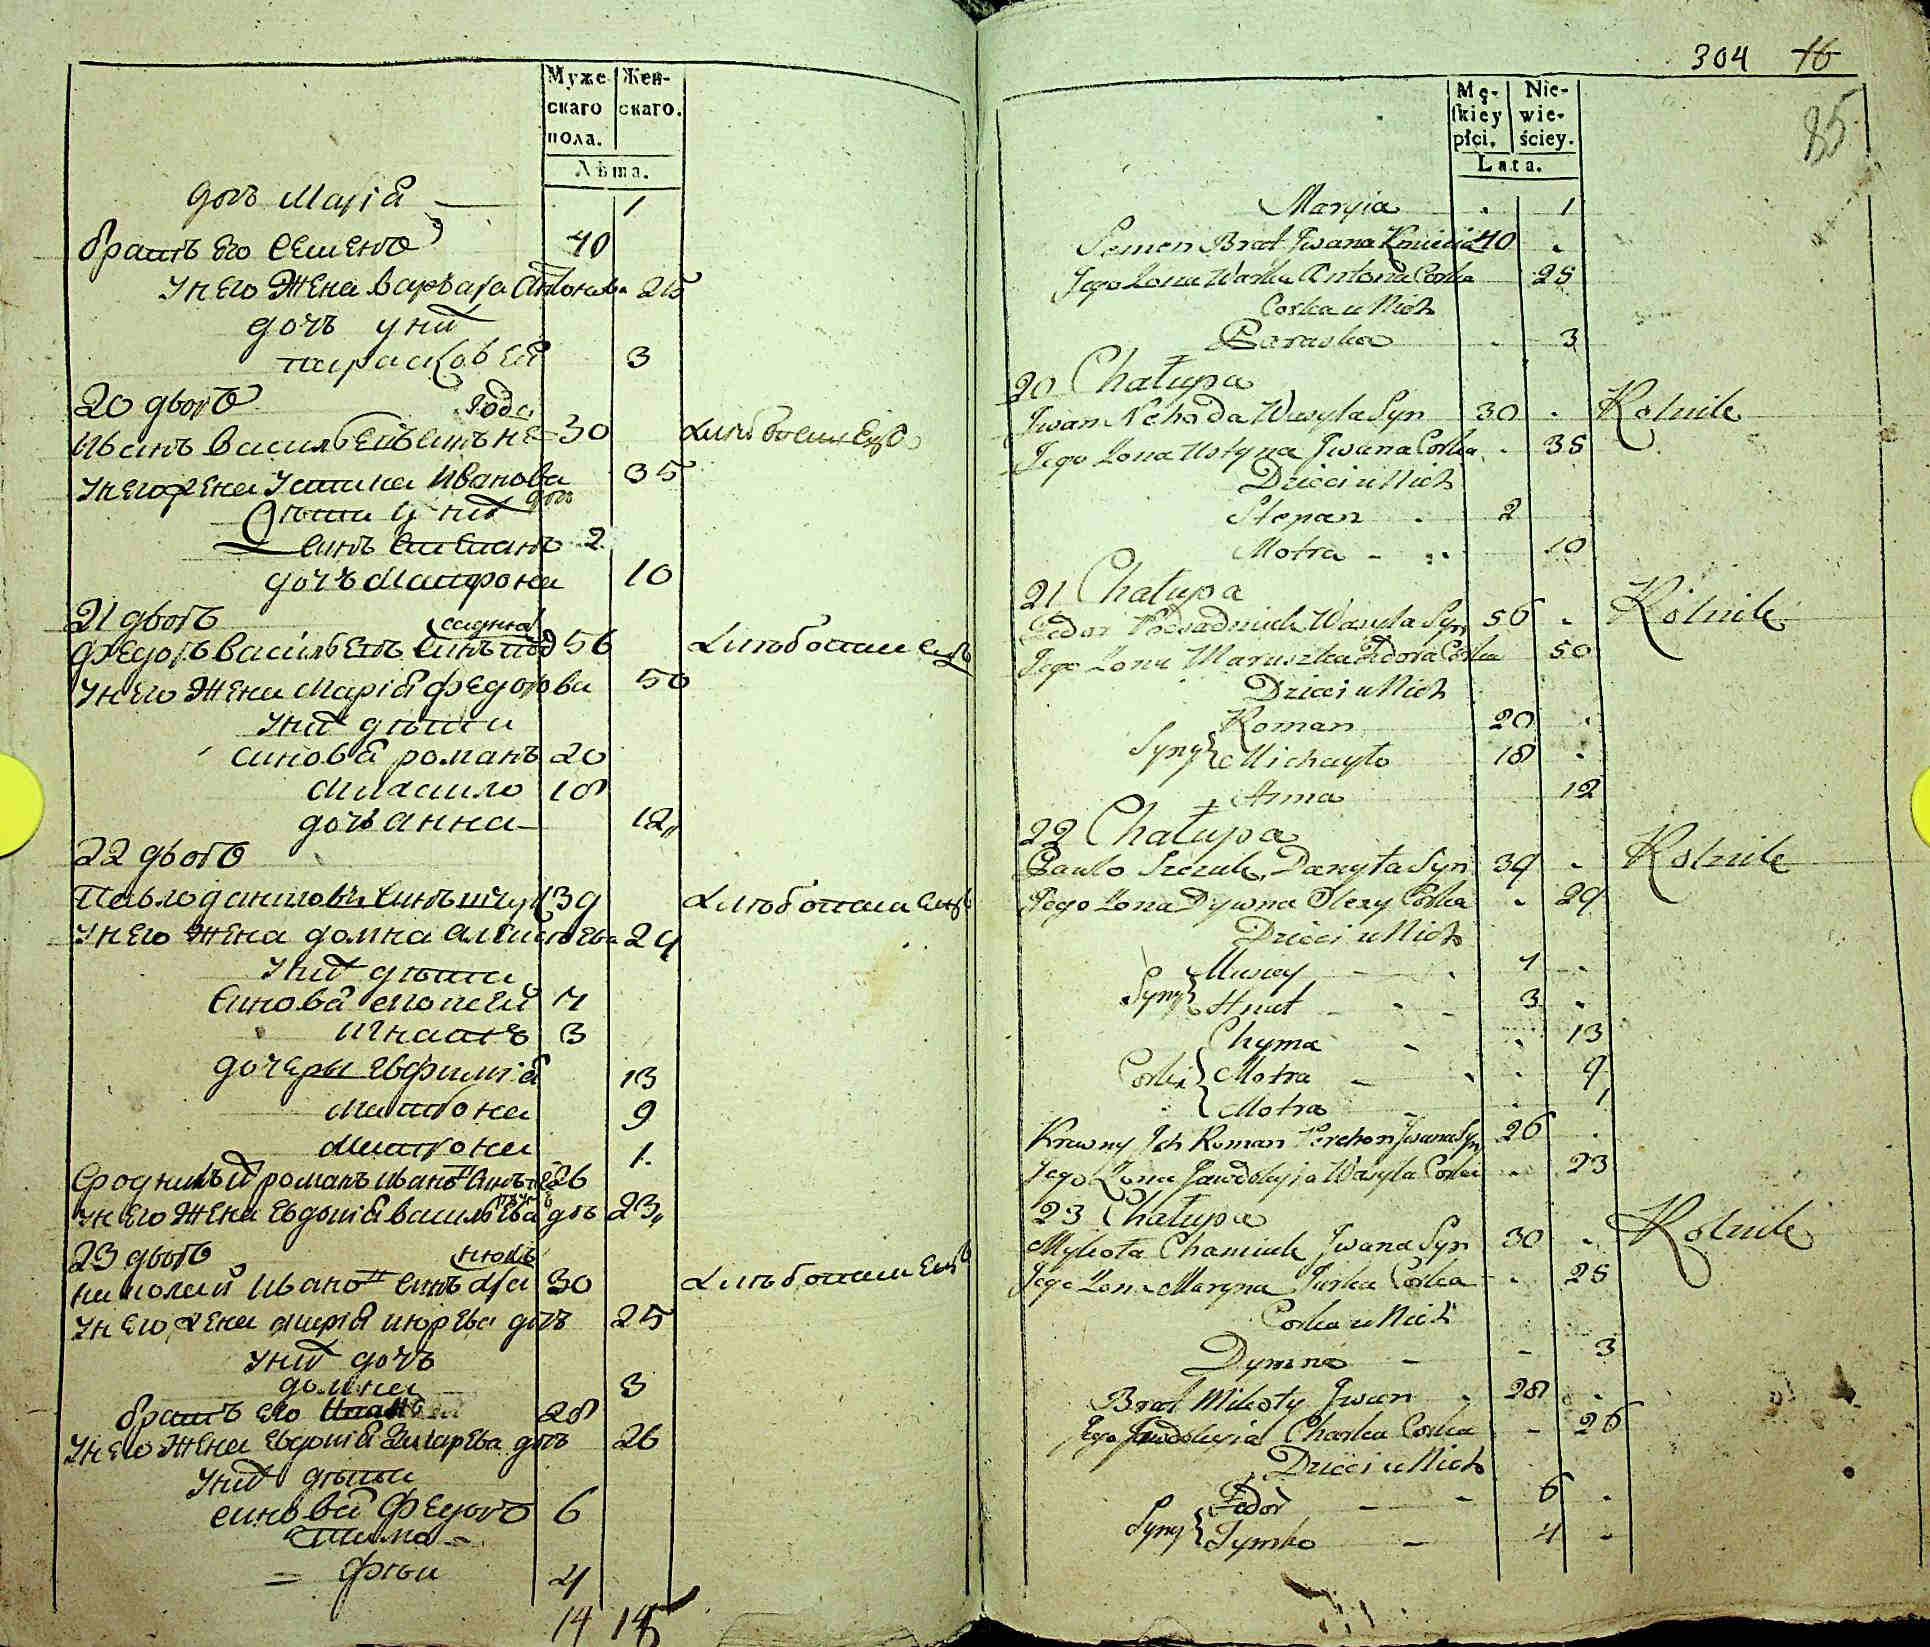 Муже Жен-
скаго скаго.
пола.
Лѣта.
дочъ Марія 1
братъ его Семенъ 40
у него жена варвара Антонова 25
дочъ у них
параsковея 3
20 дворъ
Года
Иванъ васильевъ синъ не 30
у него жена Устина Иванова 35
дочъ
дѣти у них
синъ Степанъ 2
дочъ Матрона 10
21 дворъ
Федоръ васильевъ синъ под 56
у него жена Марія Федорова 50
у них дѣти
синовя романъ 20
Михаило 18
дочъ анна 12
22 дворъ
Павло даниловъ синъ шчук 39
у него жена домна Алексѣева 29
у них дѣти
синовя 7
игнатъ 3
дочеры Евфимія 13
Матрона 9
Матрона 1.
Сродникъ их романъ ивановъ синъ 26
у него жена Евдокія васильева дочъ 23
23 дворъ
николай Ивановъ синъ 30
у него жена Марія июрева дочъ 25
у них дочъ
домна 3
братъ его Иванъ 28
у него жена Евдокія Захарева дочъ 26
у них дѣти
синовя Федоръ 6
тимо-
= фѣи 4
14 15
304 16
85
Mę- Nie-
ſkiey wie-
płci. ściey.
Lata.
Maryia . 1
Semen Brat Jwana Kmiecia 40 .
Jego Zona Warka Antona Corka 25
Corka u Nich
Paraska . 3
20 Chałupa
Jwan Nehoda Wasyla Syn 30 . Rolnik
Jego Zona Ustyna Jwana Corka . 35
Dzieci u Nich
Stepan . 2
Motra - . 10
21 Chałupa
Fedor Podsadniuk Wasyla Syn 56 . Rolnik
Jego Zona Maruszka Fedora Corka 50
Dzieci u Nich
Syny { Roman 20 .
Michayło 18 .
Anna 12
22 Chałupa
Pawło Szczuk Danyła Syn 39 . Rolnik
Jego Zona Dymna Olexy Corka . 29
Dzieci u Nich
Syny { Musiey 7 .
Hnat 3 .
Chyma 13
Corki { Motra 9
Motra 1
Krewny Ich Roman Jwana Syn 26 .
Jego Zona Jawdokyia Wasyla Corka 23
23 Chałupa
Mykoła Chamiuk Jwana Syn 30 . Rolnik
Jego Zona Maryna Jurka Corka . 25
Corka u Nich
Dymna - 3
Brat Mikoły Jwan . 28 .
Jego Jewdokyia Charka Corka - 26
Dzieci u Nich
Syny { Fedor - 6 .
Tymko - 4 -